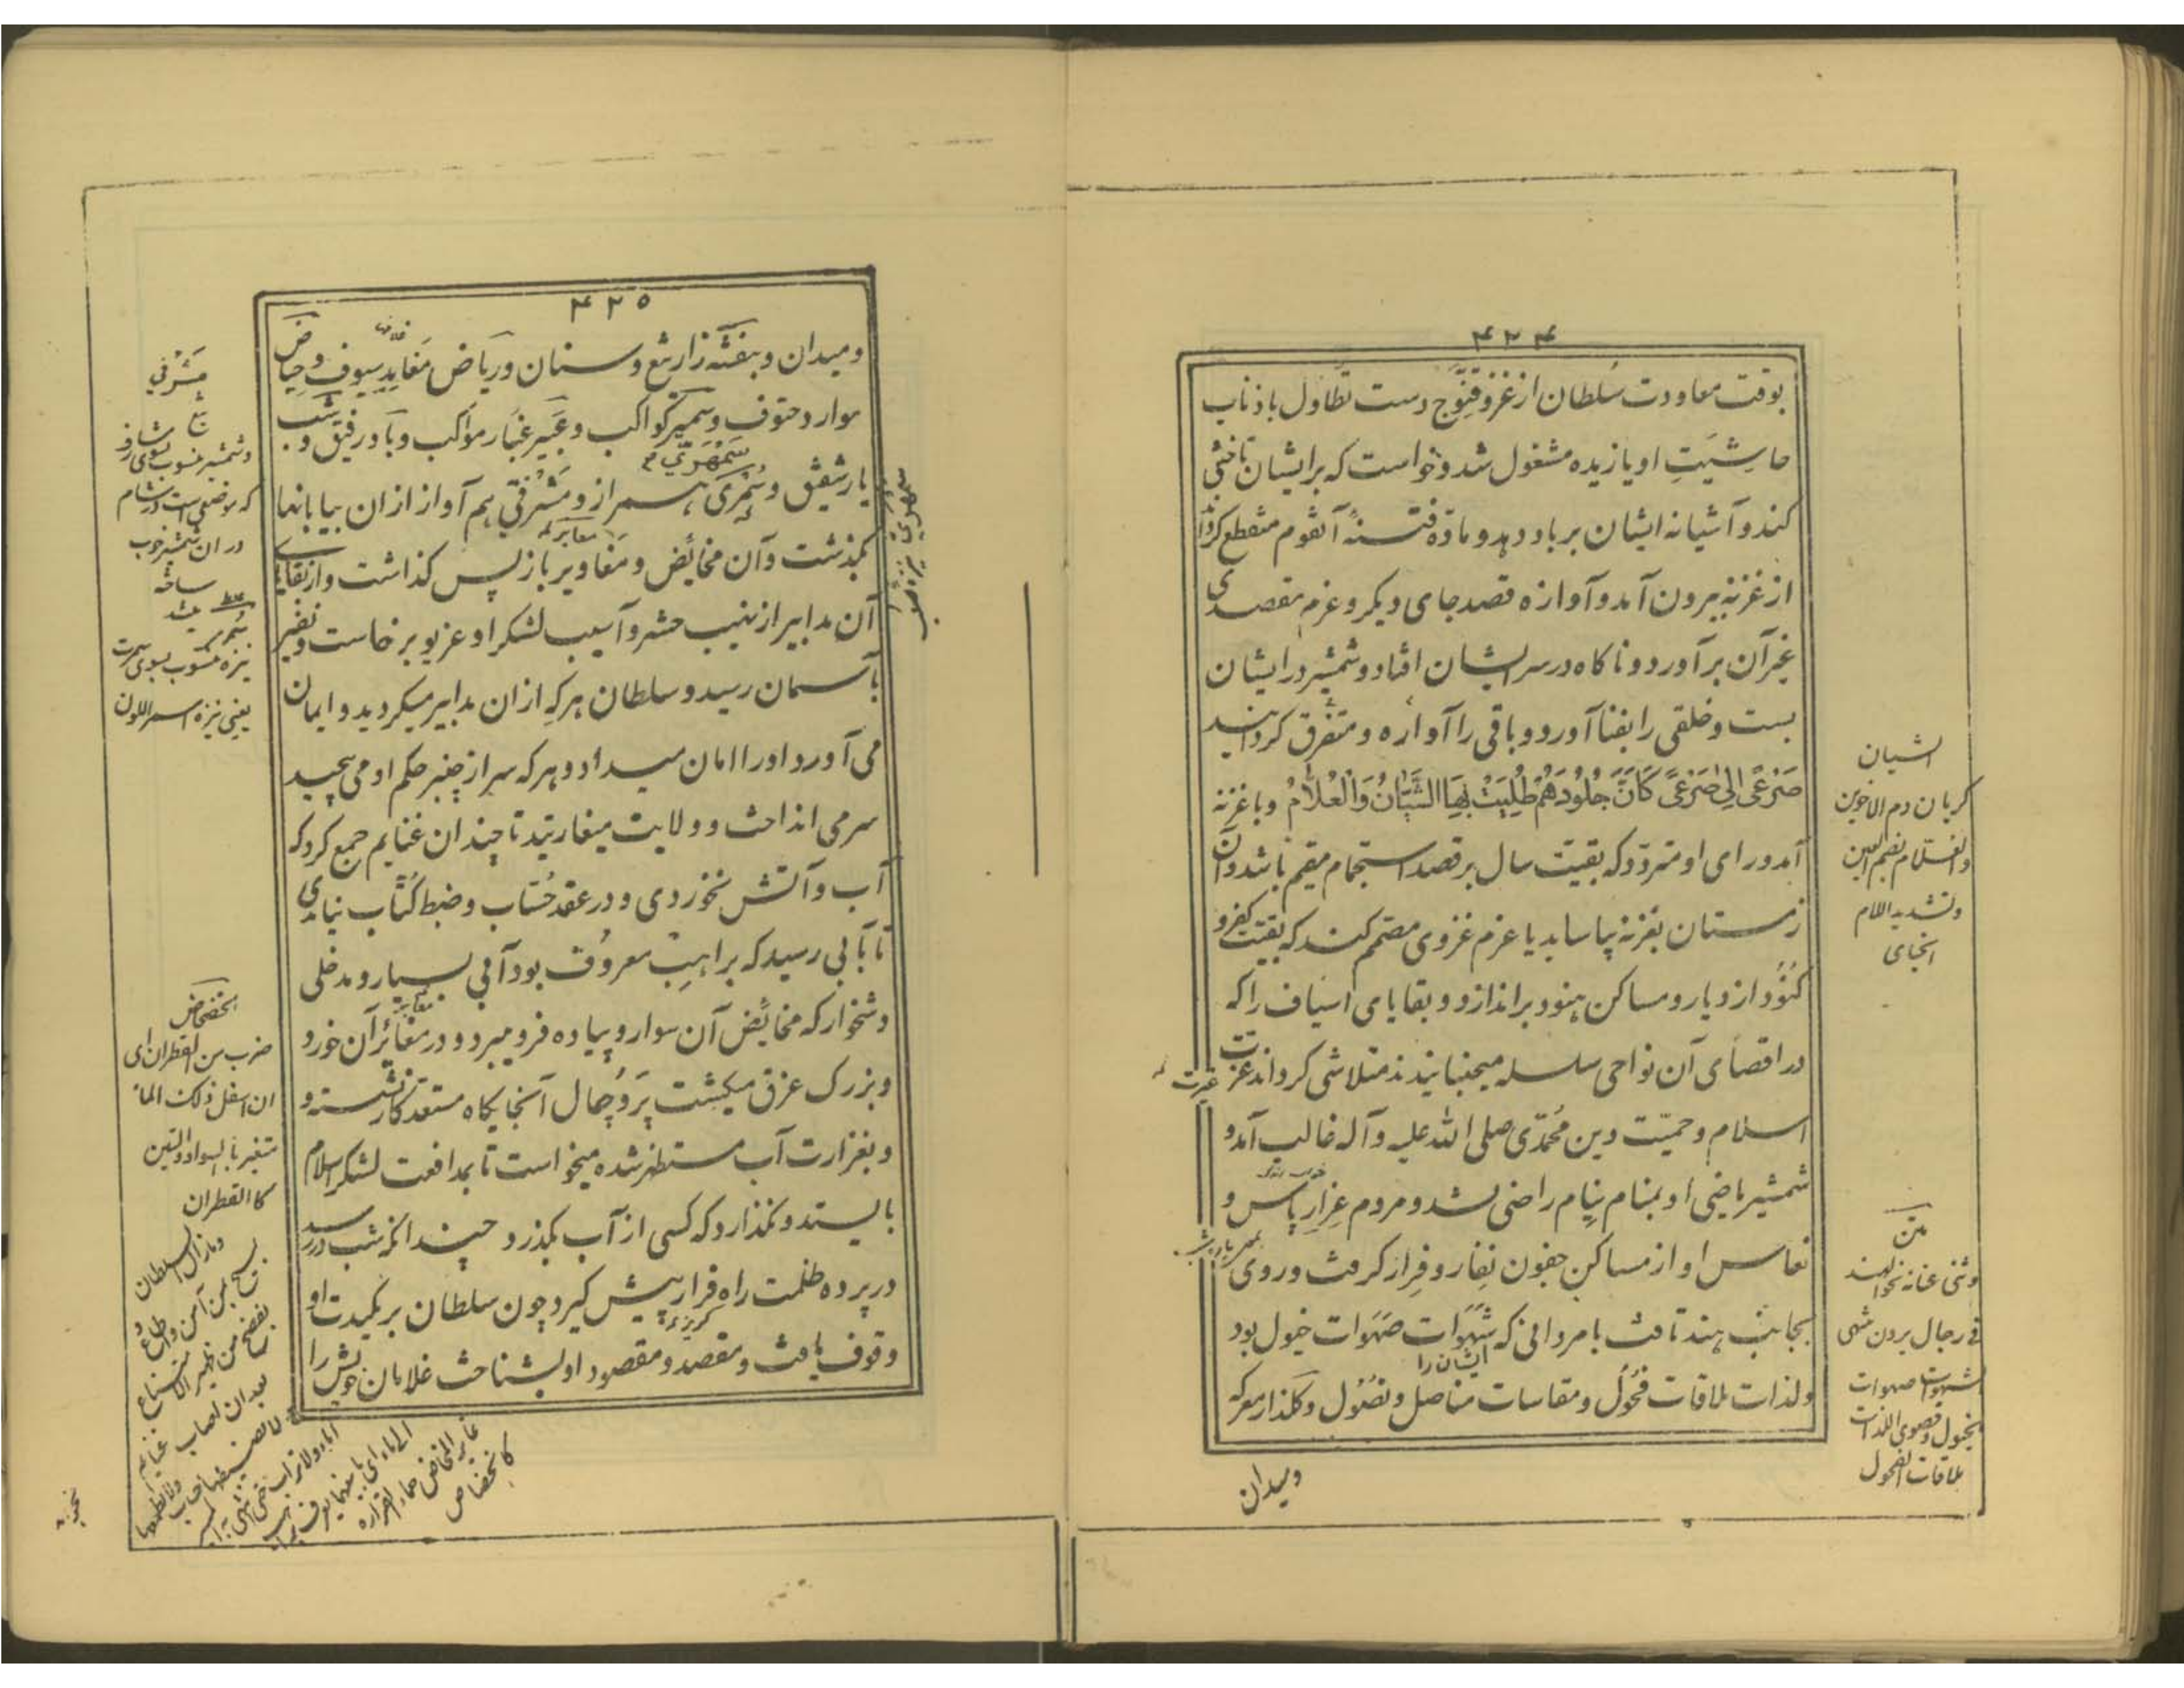 ۴۲۴
بوقت معاودت سُلطان از غزو قنّوج دست تطاول باذناب
حاشیَتِ او یازیده مشغول شد و خواست که بر ایشان تاختنی
کند و آشیانه ایشان بر باد دهد و مادّه فتنهٔ آنقوم منقطع کرداند
از غزنه بیرون آمد و آوازه قصد جای دیکر و عزم مقصدی
غیر آن برآورد و ناکاه در سر ایشان افتاد و شمشیر در ایشان
بست و خلقی را بفنا آورد و باقی را آواره و متفرّق کردانید
صَرْعَی اِلی صَرْعَی کَاَنَّ جُلُودَهُمْ طُلِیَتْ بِهَا الشَّیَّانُ وَالْعُلاَّمُ و با غزنه
آمد و رای او متردّد که بقیّت سال بر قصد استجمام مقیم باشد و آن
زمستان بغزنه بیاساید یا عزم غزوی مصمّم کند که بقیّت کفر و
کنُوُد از دیار و مساکن هنود براندازد و بقایای اسیاف را که
در اقصای آن نواحی سلسله میجنبانیدند متلاشی کرداند عزّت
غیرت
اسلام و حمیّت دین مُحمّدی صلی الله علیه و آله غالب آمد و
شمشیر ماضی او بمنام نیام راضی نشد و مردم غِرارِ باس و
نعاس او از مساکن جفون نِفار و فِرار کرفت و روی
بجانب هند تافت با مردانی که شَهَوات صَهَوات خیول بود
ایشان را
ولذات ملاقات فُحُول و مقاسات مناصل و نصُوُل و کلذار معرکه
ومیدان
الشیان
کربان دم الاخوین
والعُلاّم بضم العین
وتشدید اللام
الحنای
متن
وثنی عنانه نحو الهند
فی رجال یرون شهی
الشهوات صهوات
الخیول وقصوی اللذات
ملاقات الفحول
۴۲۵
ومیدان و بنفشه زار تیغ و سنان و ریاض مَغاید سیوف و حیاض
موارد حتوف و سمیر کواکب و عَبیر غبَار مواکب و باد رفیق و شب
یار شفیق و سُمْرَی همراز و مَشرَفیّ هم آواز از ان بیابانها
سَمْهَرِیّ
بکذشت و آن مخائض و مَغاویر باز پس کذاشت و از بقایای
آن مدابیر از نهیب حشر و آسیب لشکر او غریو برخاست و نفیر
بآسمان رسید و سلطان هر که از ان مدابیر میکردید و ایمان
می آورد او را امان میداد و هر که سر از چنبر حکم او می پیچید
سر می انداخت و ولایت میغارتید تا چندان غنایم جمع کرد که
آب و آتش نخوردی و در عقد حُسّاب و ضبط کُتّاب نیامدی
تا بآبی رسید که براهِب معروف بود آبی بسیار و مدخلی
دشخوار که مخائض آن سوار و پیاده فرو میبرد و در مَغائر آن خورد
و بزرک غرق میکشت پَروُجپال آنجایکاه مستعد کار نشسته و
و بغزارت آب مستظهر شده میخواست تا بمدافعت لشکر اسلام
بایستد و نکذارد که کسی از آب بکذرد چندانکه شب در رسد
در پرده ظلمت راه فرار پیش کیرد چون سلطان بر مکیدت او
وقوف یافت و مقصد و مقصود او بشناخت غلامان خویش را
مَشْرَفی
وشمشیر منسوب بسوی مشارف
که موضعی است در شام
در ان شمشیر خوب
ساخته
میشد
نیزه منسوب بسوی سمرت
یعنی نیزه اسمراللون
الخضخاض
ضرب من القطران ای
ان اسفل ذلک الماء
متغیر بالسواد والنتن
کالقطران
ومازال السلطان